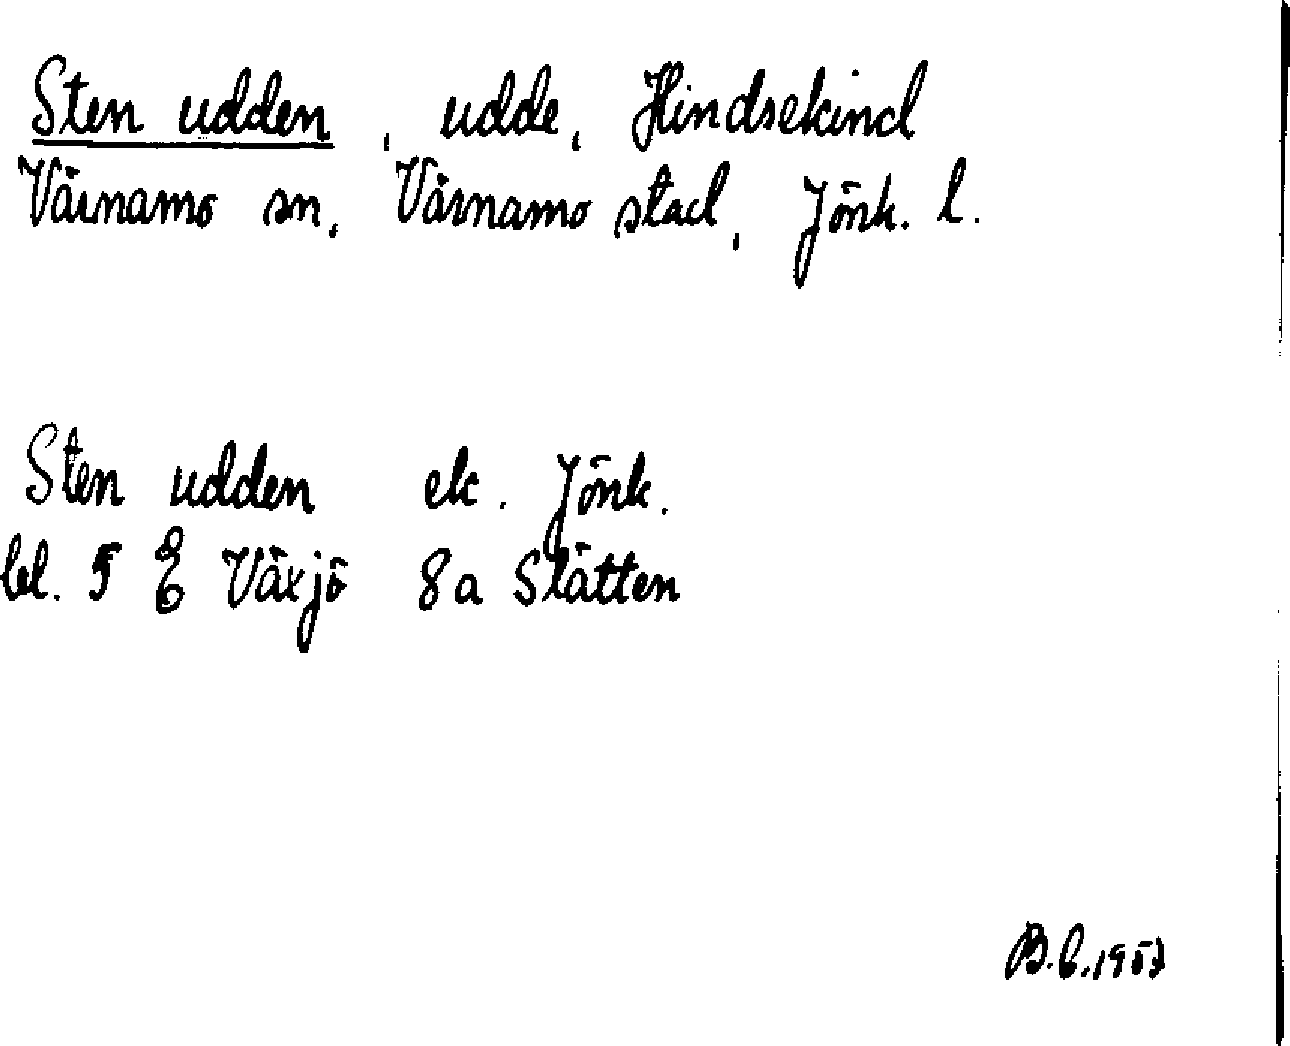 Sten udden, udde, Hindsekind
Värnamo sn, Värnamo stad, Jönk. l.
Sten udden ek. Jönk.
bl. 5 E Växjö 8a Slätten
B.C. 1957